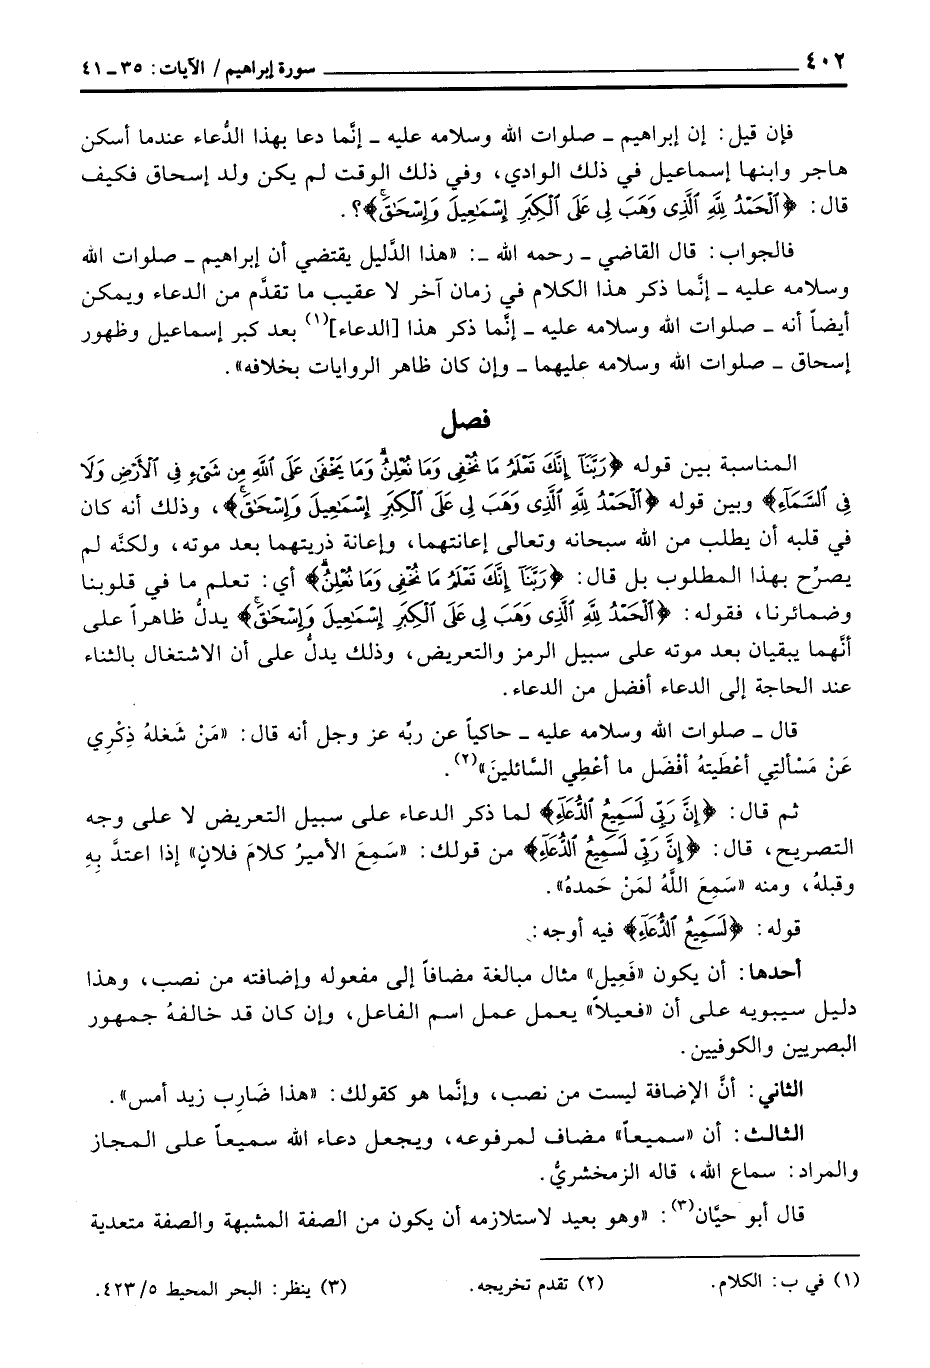 ٤٠٢ سورة إبراهيم / الآيات: ٣٥ ـ ٤١
فإن قيل: إن إبراهيم ـ صلوات الله وسلامه عليه ـ إنَّما دعا بهذا الدُّعاء عندما أسكن
هاجر وابنها إسماعيل في ذلك الوادي، وفي ذلك الوقت لم يكن ولد إسحاق فكيف
قال: ﴿ٱلْحَمْدُ لِلَّهِ ٱلَّذِى وَهَبَ لِى عَلَى ٱلْكِبَرِ إِسْمَٰعِيلَ وَإِسْحَٰقَۚ﴾؟.
فالجواب: قال القاضي ـ رحمه الله ـ: «هذا الدَّليل يقتضي أن إبراهيم ـ صلوات الله
وسلامه عليه ـ إنَّما ذكر هذا الكلام في زمان آخر لا عقيب ما تقدَّم من الدعاء ويمكن
أيضاً أنه ـ صلوات الله وسلامه عليه ـ إنَّما ذكر هذا [الدعاء](١) بعد كبر إسماعيل وظهور
إسحاق ـ صلوات الله وسلامه عليهما ـ وإن كان ظاهر الروايات بخلافه».
فصل
المناسبة بين قوله ﴿رَبَّنَآ إِنَّكَ تَعْلَمُ مَا نُخْفِى وَمَا نُعْلِنُۗ وَمَا يَخْفَىٰ عَلَى ٱللَّهِ مِن شَىْءٍ فِى ٱلْأَرْضِ وَلَا
فِى ٱلسَّمَآءِ﴾ وبين قوله ﴿ٱلْحَمْدُ لِلَّهِ ٱلَّذِى وَهَبَ لِى عَلَى ٱلْكِبَرِ إِسْمَٰعِيلَ وَإِسْحَٰقَۚ﴾، وذلك أنه كان
في قلبه أن يطلب من الله سبحانه وتعالى إعانتهما، وإعانة ذريتهما بعد موته، ولكنَّه لم
يصرِّح بهذا المطلوب بل قال: ﴿رَبَّنَآ إِنَّكَ تَعْلَمُ مَا نُخْفِى وَمَا نُعْلِنُۗ﴾ أي: تعلم ما في قلوبنا
وضمائرنا، فقوله: ﴿ٱلْحَمْدُ لِلَّهِ ٱلَّذِى وَهَبَ لِى عَلَى ٱلْكِبَرِ إِسْمَٰعِيلَ وَإِسْحَٰقَۚ﴾ يدلُّ ظاهراً على
أنَّهما يبقيان بعد موته على سبيل الرمز والتعريض، وذلك يدلُّ على أن الاشتغال بالثناء
عند الحاجة إلى الدعاء أفضل من الدعاء.
قال ـ صلوات الله وسلامه عليه ـ حاكياً عن ربِّه عز وجل أنه قال: «مَنْ شَغلهُ ذِكْرِي
عَنْ مَسْألتِي أعْطَيتهُ أفْضَل ما أعْطِي السَّائلينَ»(٢).
ثم قال: ﴿إِنَّ رَبِّى لَسَمِيعُ ٱلدُّعَآءِ﴾ لما ذكر الدعاء على سبيل التعريض لا على وجه
التصريح، قال: ﴿إِنَّ رَبِّى لَسَمِيعُ ٱلدُّعَآءِ﴾ من قولك: «سَمِعَ الأميرُ كلامَ فلانٍ» إذا اعتدَّ بِهِ
وقبلهُ، ومنه «سَمِعَ اللَّهُ لمَنْ حَمدهُ».
قوله: ﴿لَسَمِيعُ ٱلدُّعَآءِ﴾ فيه أوجه:
أحدها: أن يكون «فَعِيل» مثال مبالغة مضافاً إلى مفعوله وإضافته من نصب، وهذا
دليل سيبويه على أن «فعيلاً» يعمل عمل اسم الفاعل، وإن كان قد خالفهُ جمهور
البصريين والكوفيين.
الثاني: أنَّ الإضافة ليست من نصب، وإنَّما هو كقولك: «هذا ضَارِب زيد أمس».
الثالث: أن «سميعاً» مضاف لمرفوعه، ويجعل دعاء الله سميعاً على المجاز
والمراد: سماع الله، قاله الزمخشريُّ.
قال أبو حيَّان(٣): «وهو بعيد لاستلزامه أن يكون من الصفة المشبهة والصفة متعدية
(١) في ب: الكلام. (٢) تقدم تخريجه. (٣) ينظر: البحر المحيط ٥/٤٢٣.